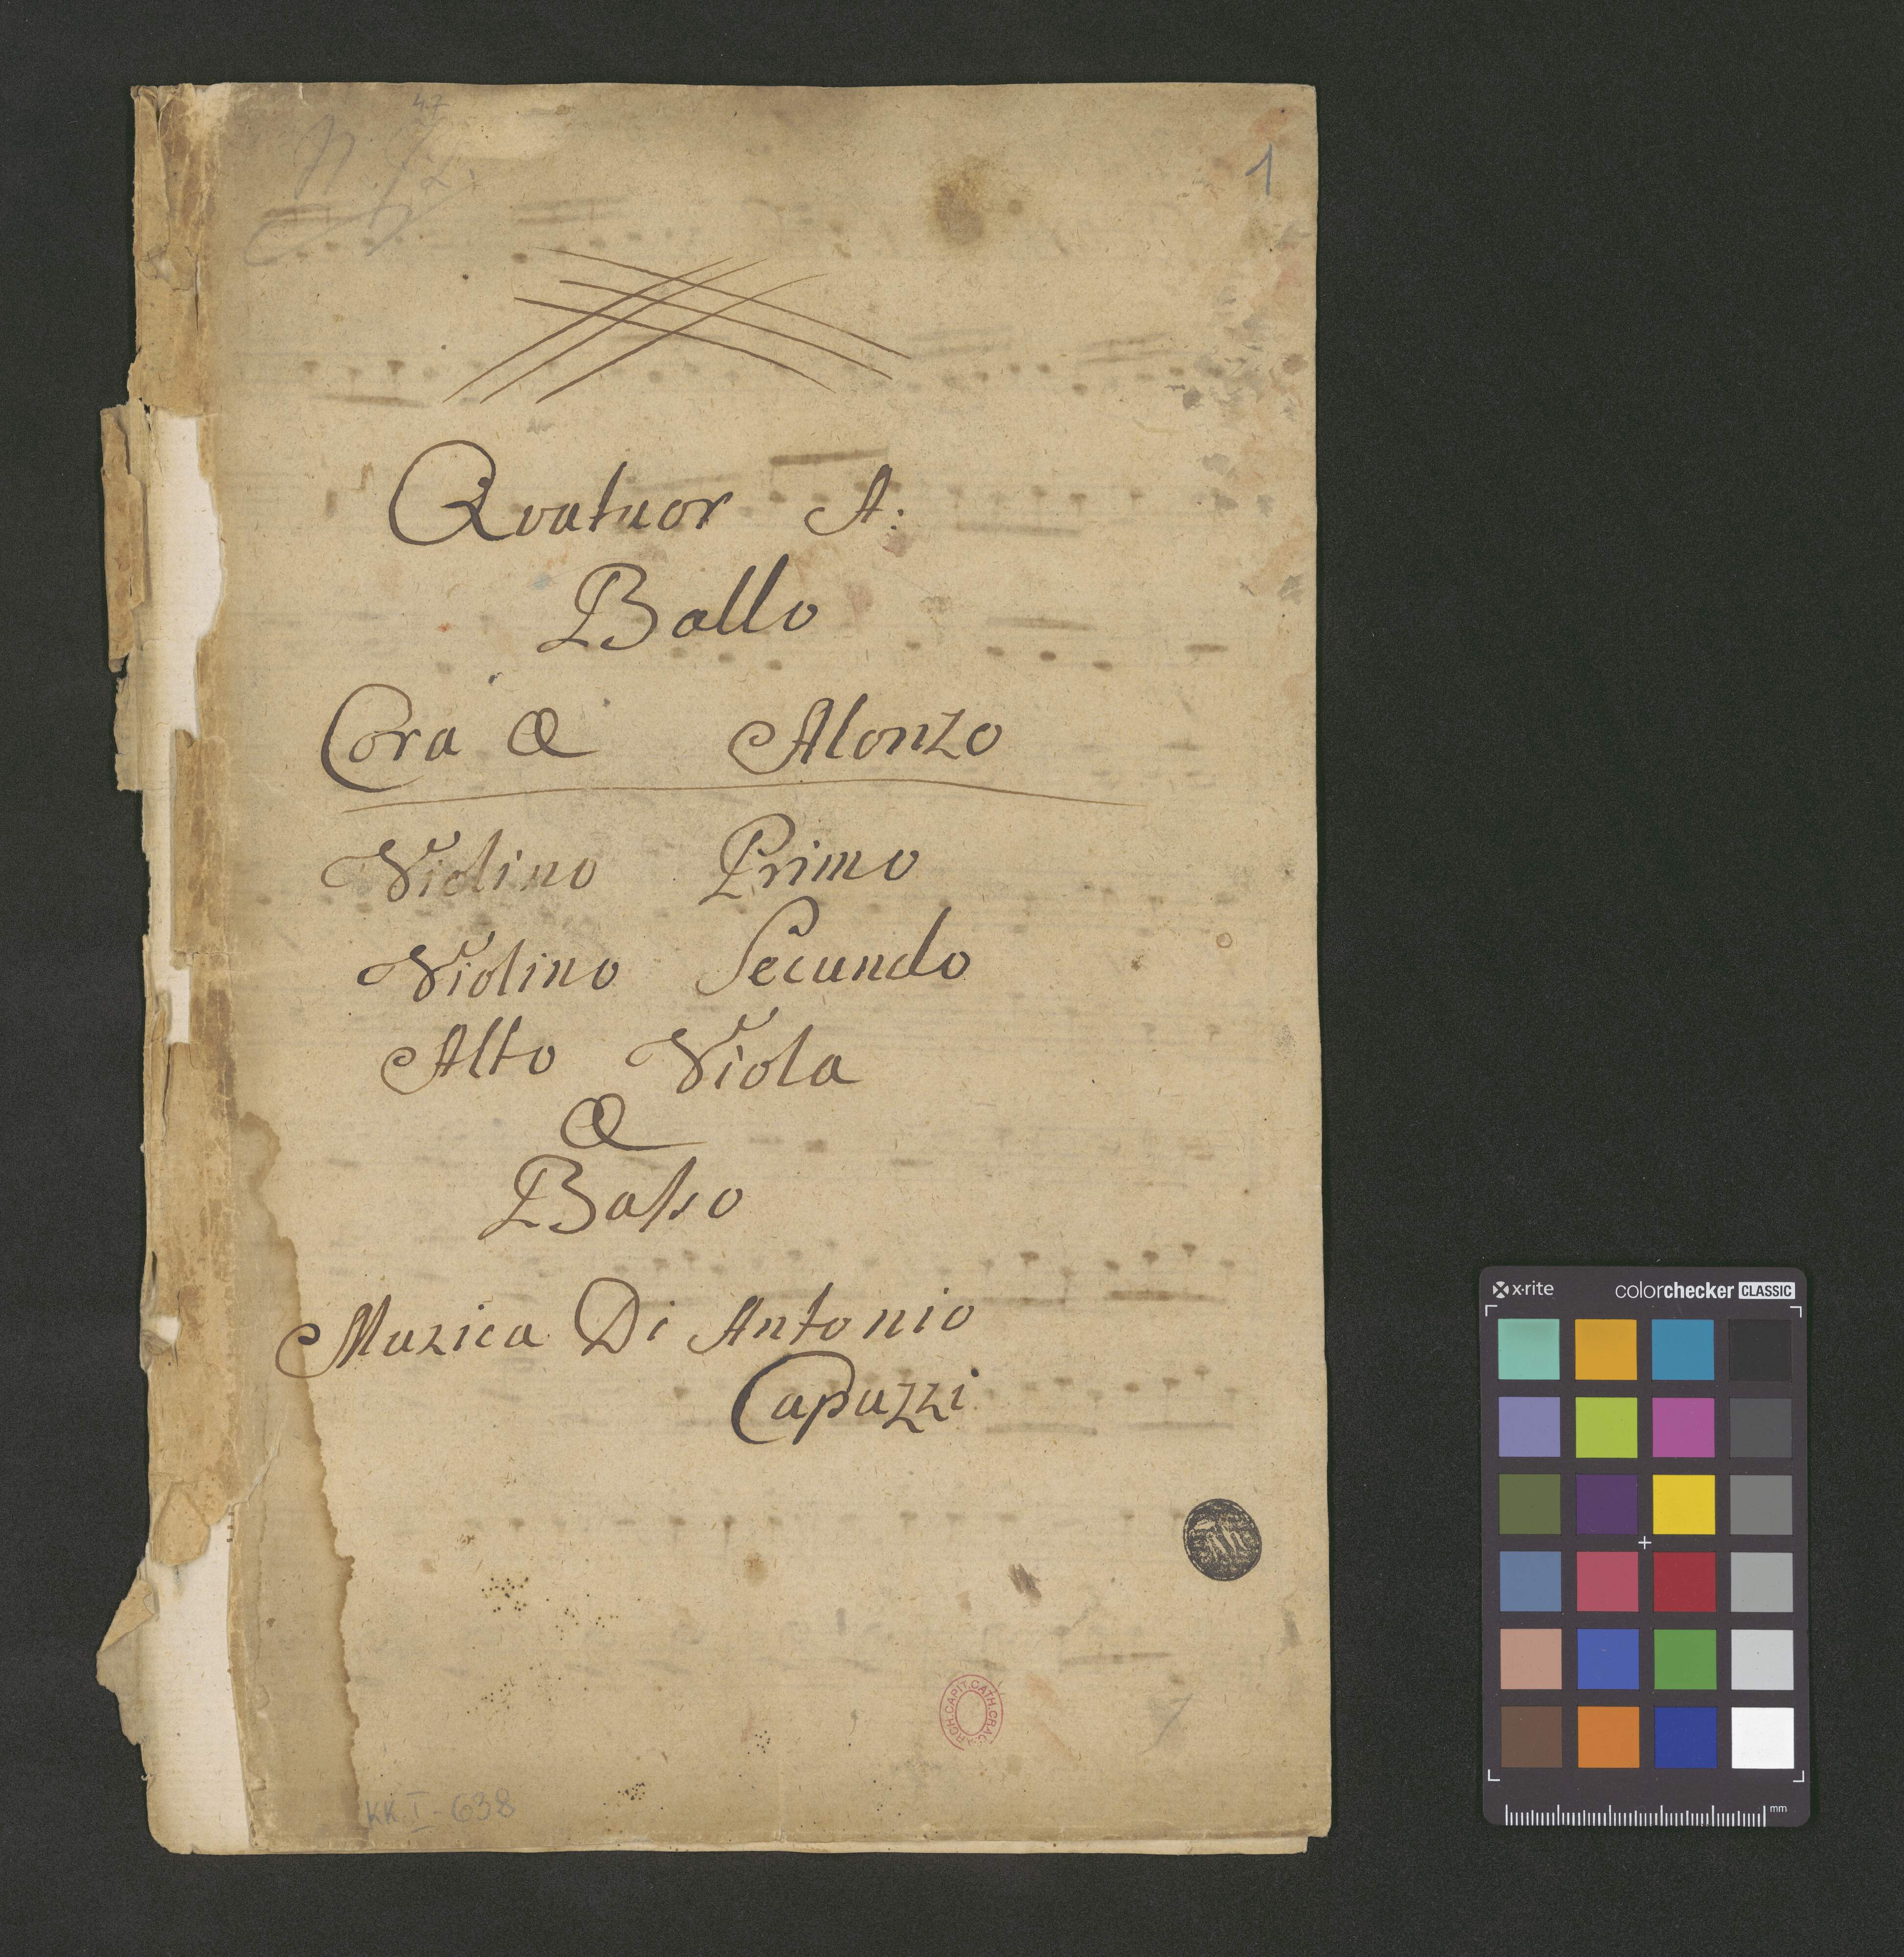 47
1
Qvatuor A:
Ballo
Cora & Alonzo
Violino Primo
Violino Secundo
Alto Viola
&
Baſso
Muzica Di Antonio
Capuzzi
ARCH.CAPIT.CATH.CRAC.
KK I-638
x-rite colorchecker CLASSIC
mm